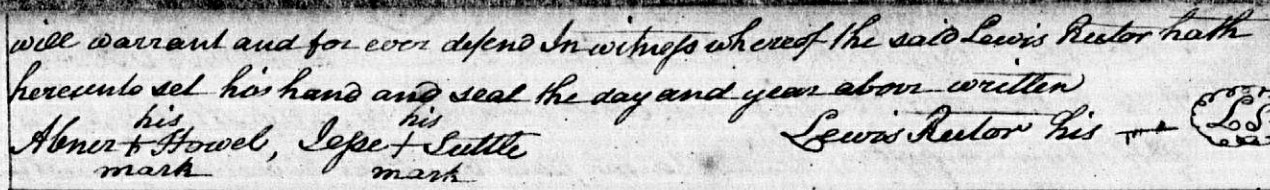 will warrant and for ever defend In witness whereof the said Lewis Rector hath
hereunto set his hand and seal the day and year above written
his his
Abner + Howel, Jesse + Suttle Lewis Rector his + LS
mark mark